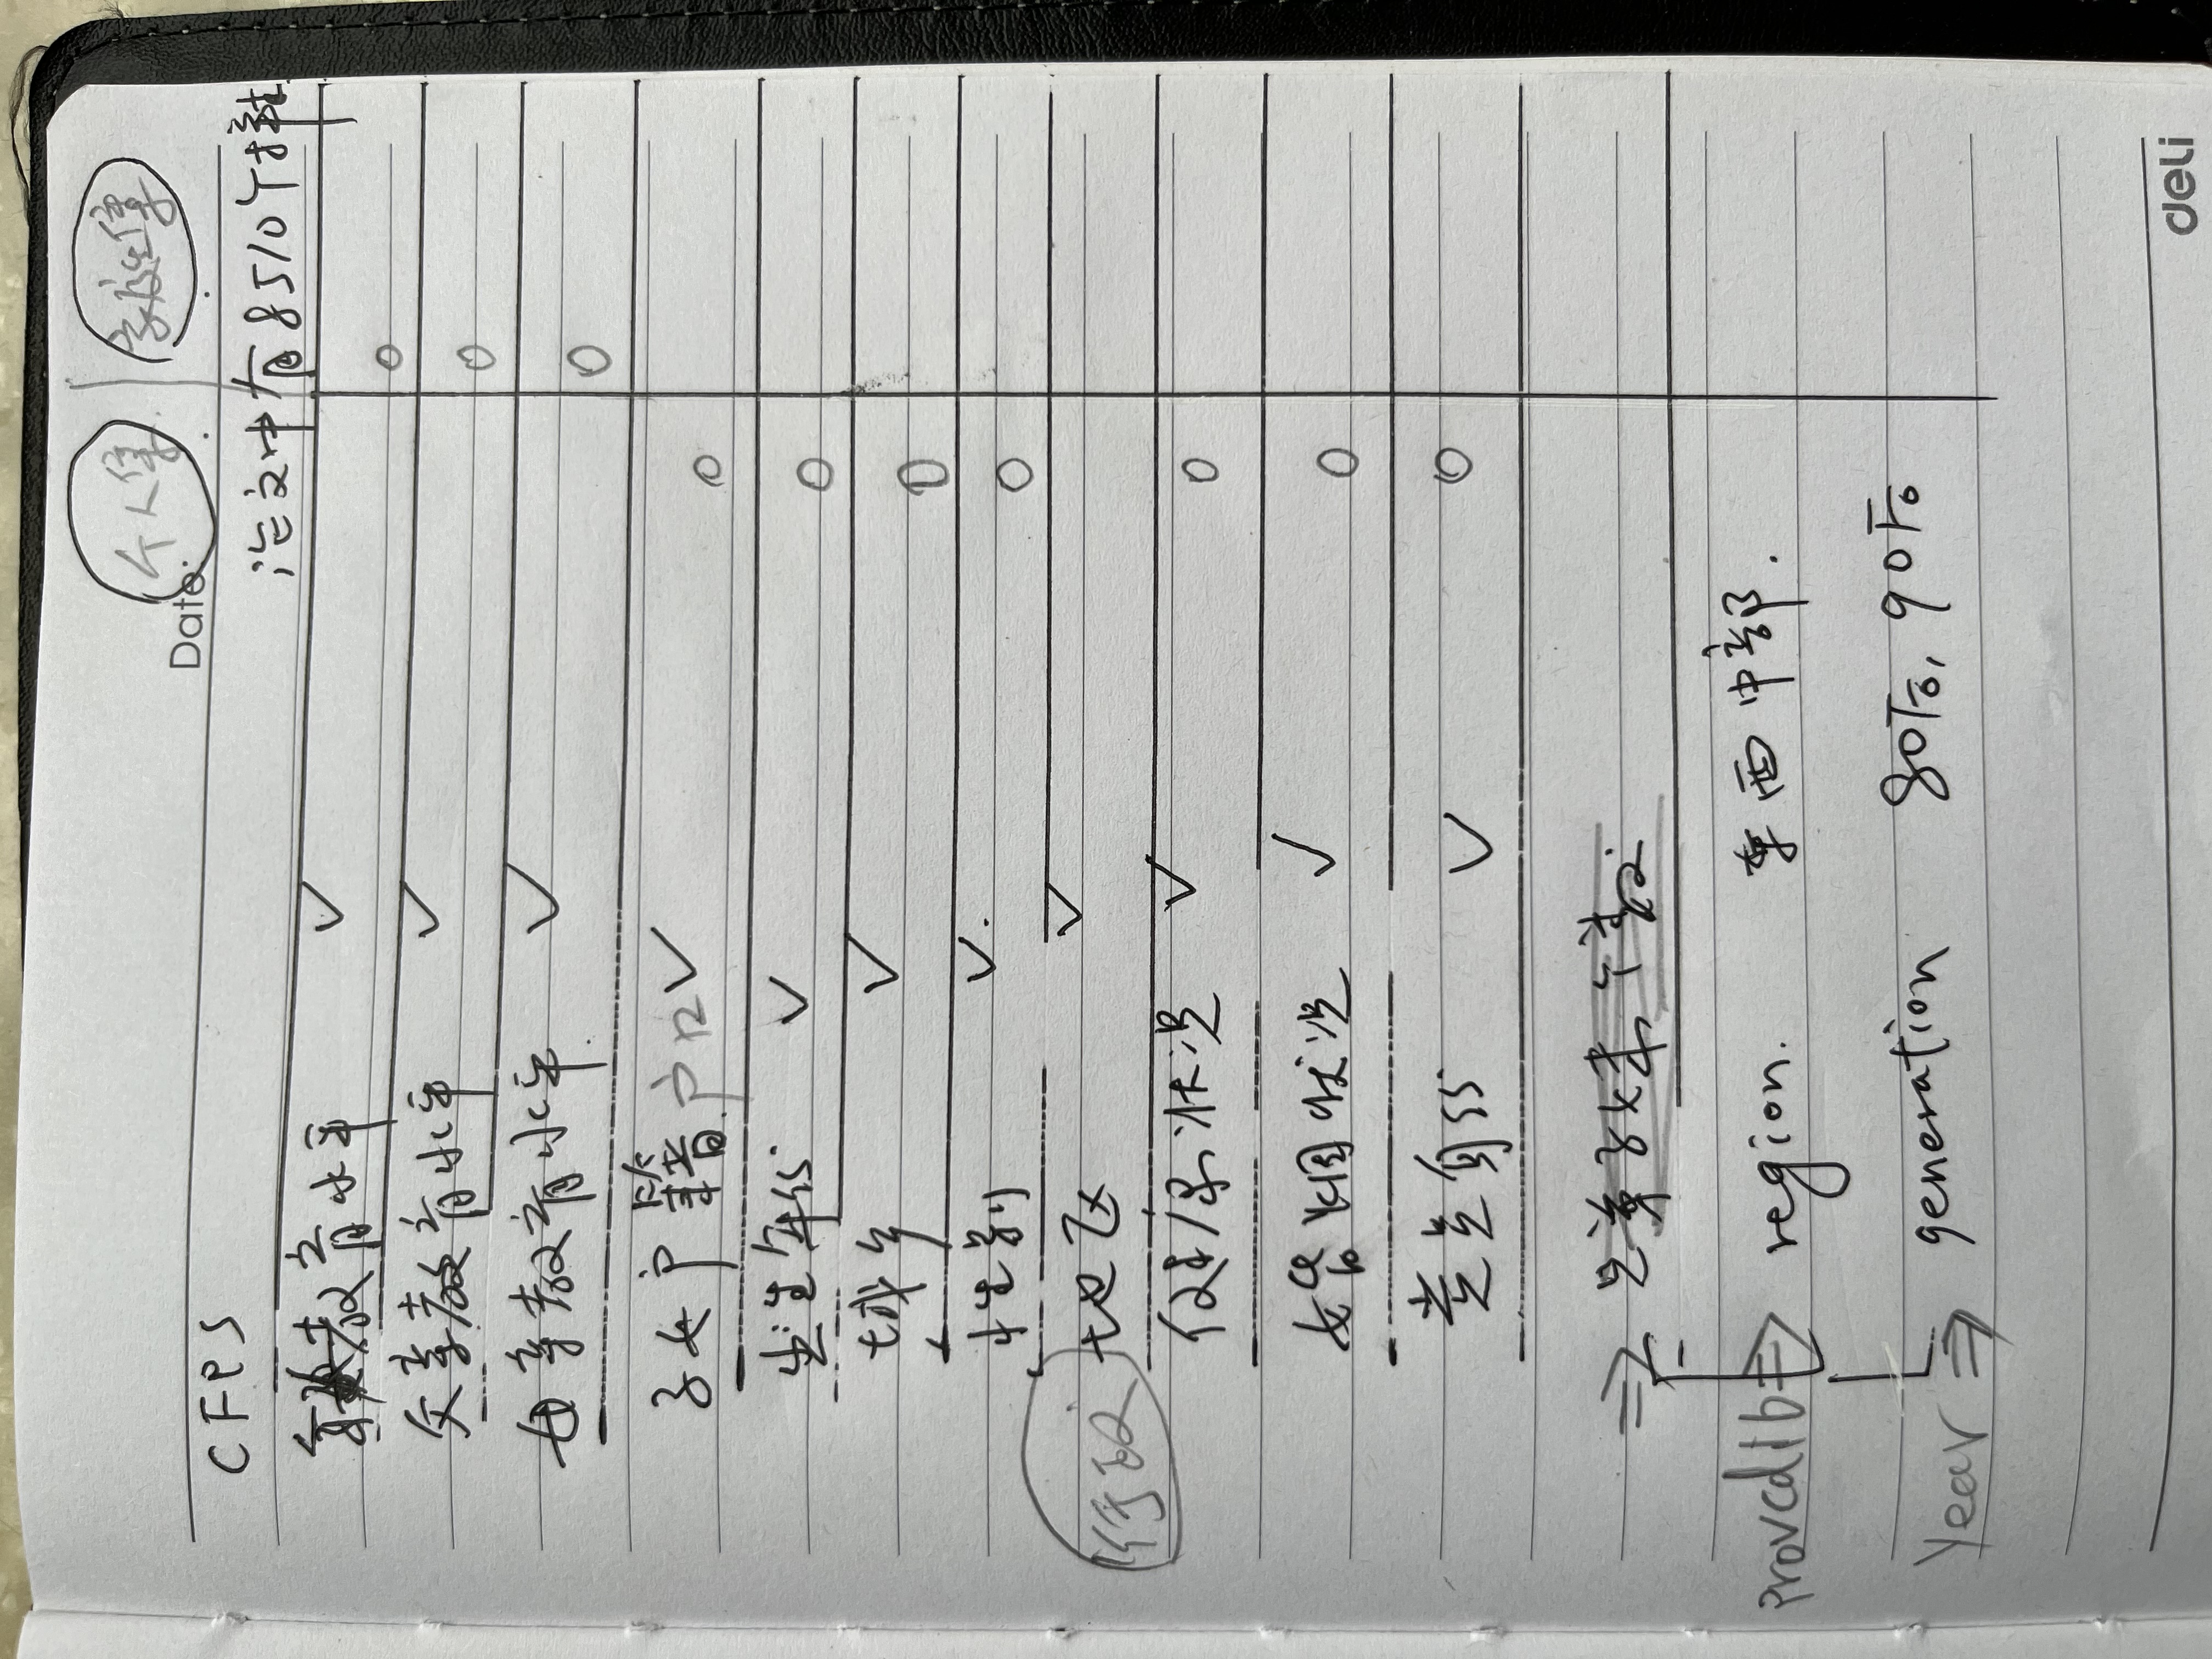 个人库 家庭库
Date:
CFPS
论文中有8510个样本
教育水平 ✓ O
父亲教育水平 ✓ O
母亲教育水平 ✓ O
子女户籍 户口 ✓ O
出生年份 ✓ O
城乡 ✓ O
性别 ✓ O
行政 地区 ✓
健康状况 ✓ O
婚姻状况 ✓ O
党员身份 ✓ O
⇒ 兄弟子妹个数
provcd16 ⇒ region. 东西中部.
Year ⇒ generation 80后, 90后
deli